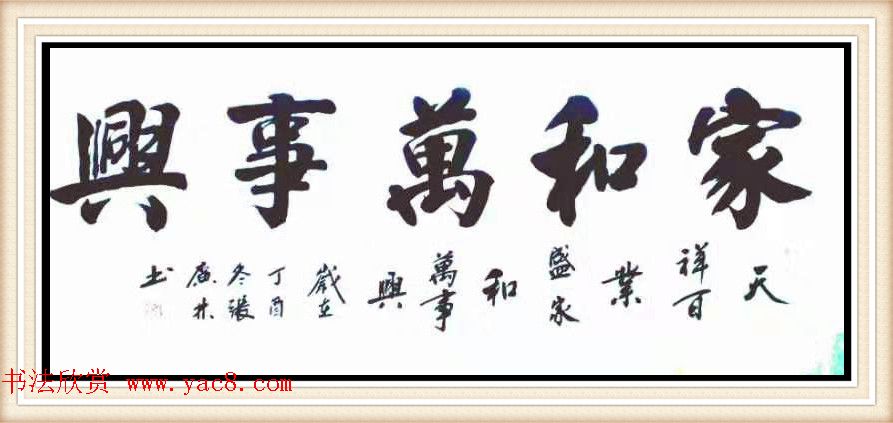 家和萬事興
天
祥百
業
盛家
和
萬事
興
歲在
丁酉
冬張
廣林
书
书法欣赏 www.yac8.com